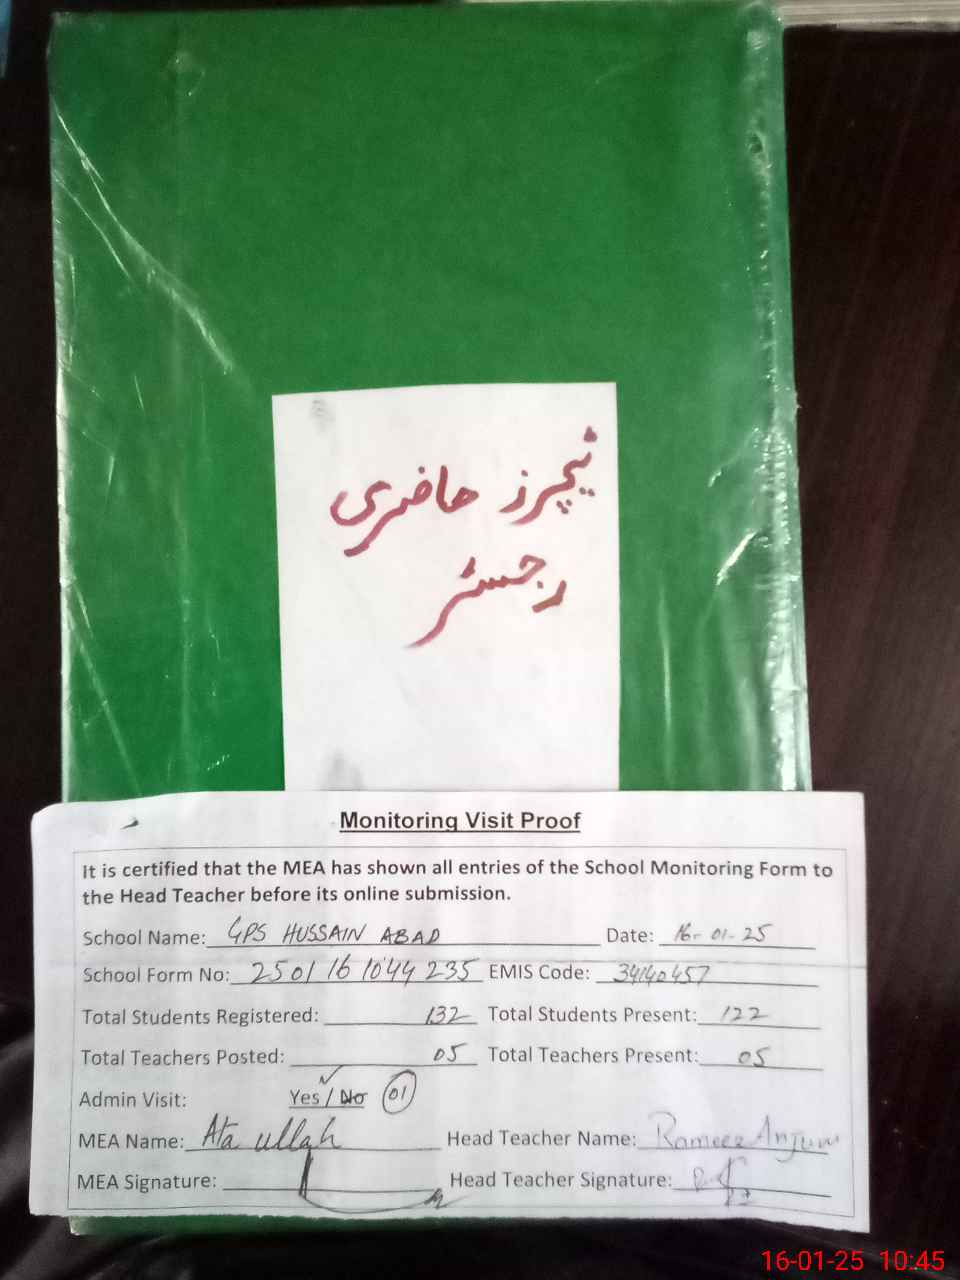 ٹیچرز حاضری
رجسٹر
Monitoring Visit Proof
It is certified that the MEA has shown all entries of the School Monitoring Form to
the Head Teacher before its online submission.
School Name: GPS HUSSAIN ABAD Date: 16-01-25
School Form No: 2501161044235 EMIS Code: 34140457
Total Students Registered: 132 Total Students Present: 122
Total Teachers Posted: 05 Total Teachers Present: 05
Admin Visit: Yes / No 01
MEA Name: Ata ullah Head Teacher Name: Rameez Anjum
MEA Signature: Head Teacher Signature:
16-01-25 10:45